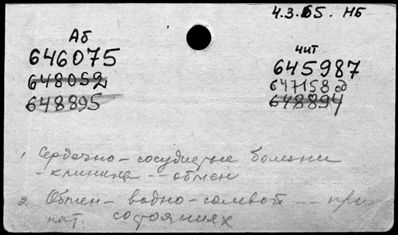 4.3.65. НБ
Аб
646075
648052
648895
чит
645987
647158
648894
1. Сердечно-сосудистые болезни
- клиника -- обмен
2. Обмен - водно-солевой -- при
пат. состояниях